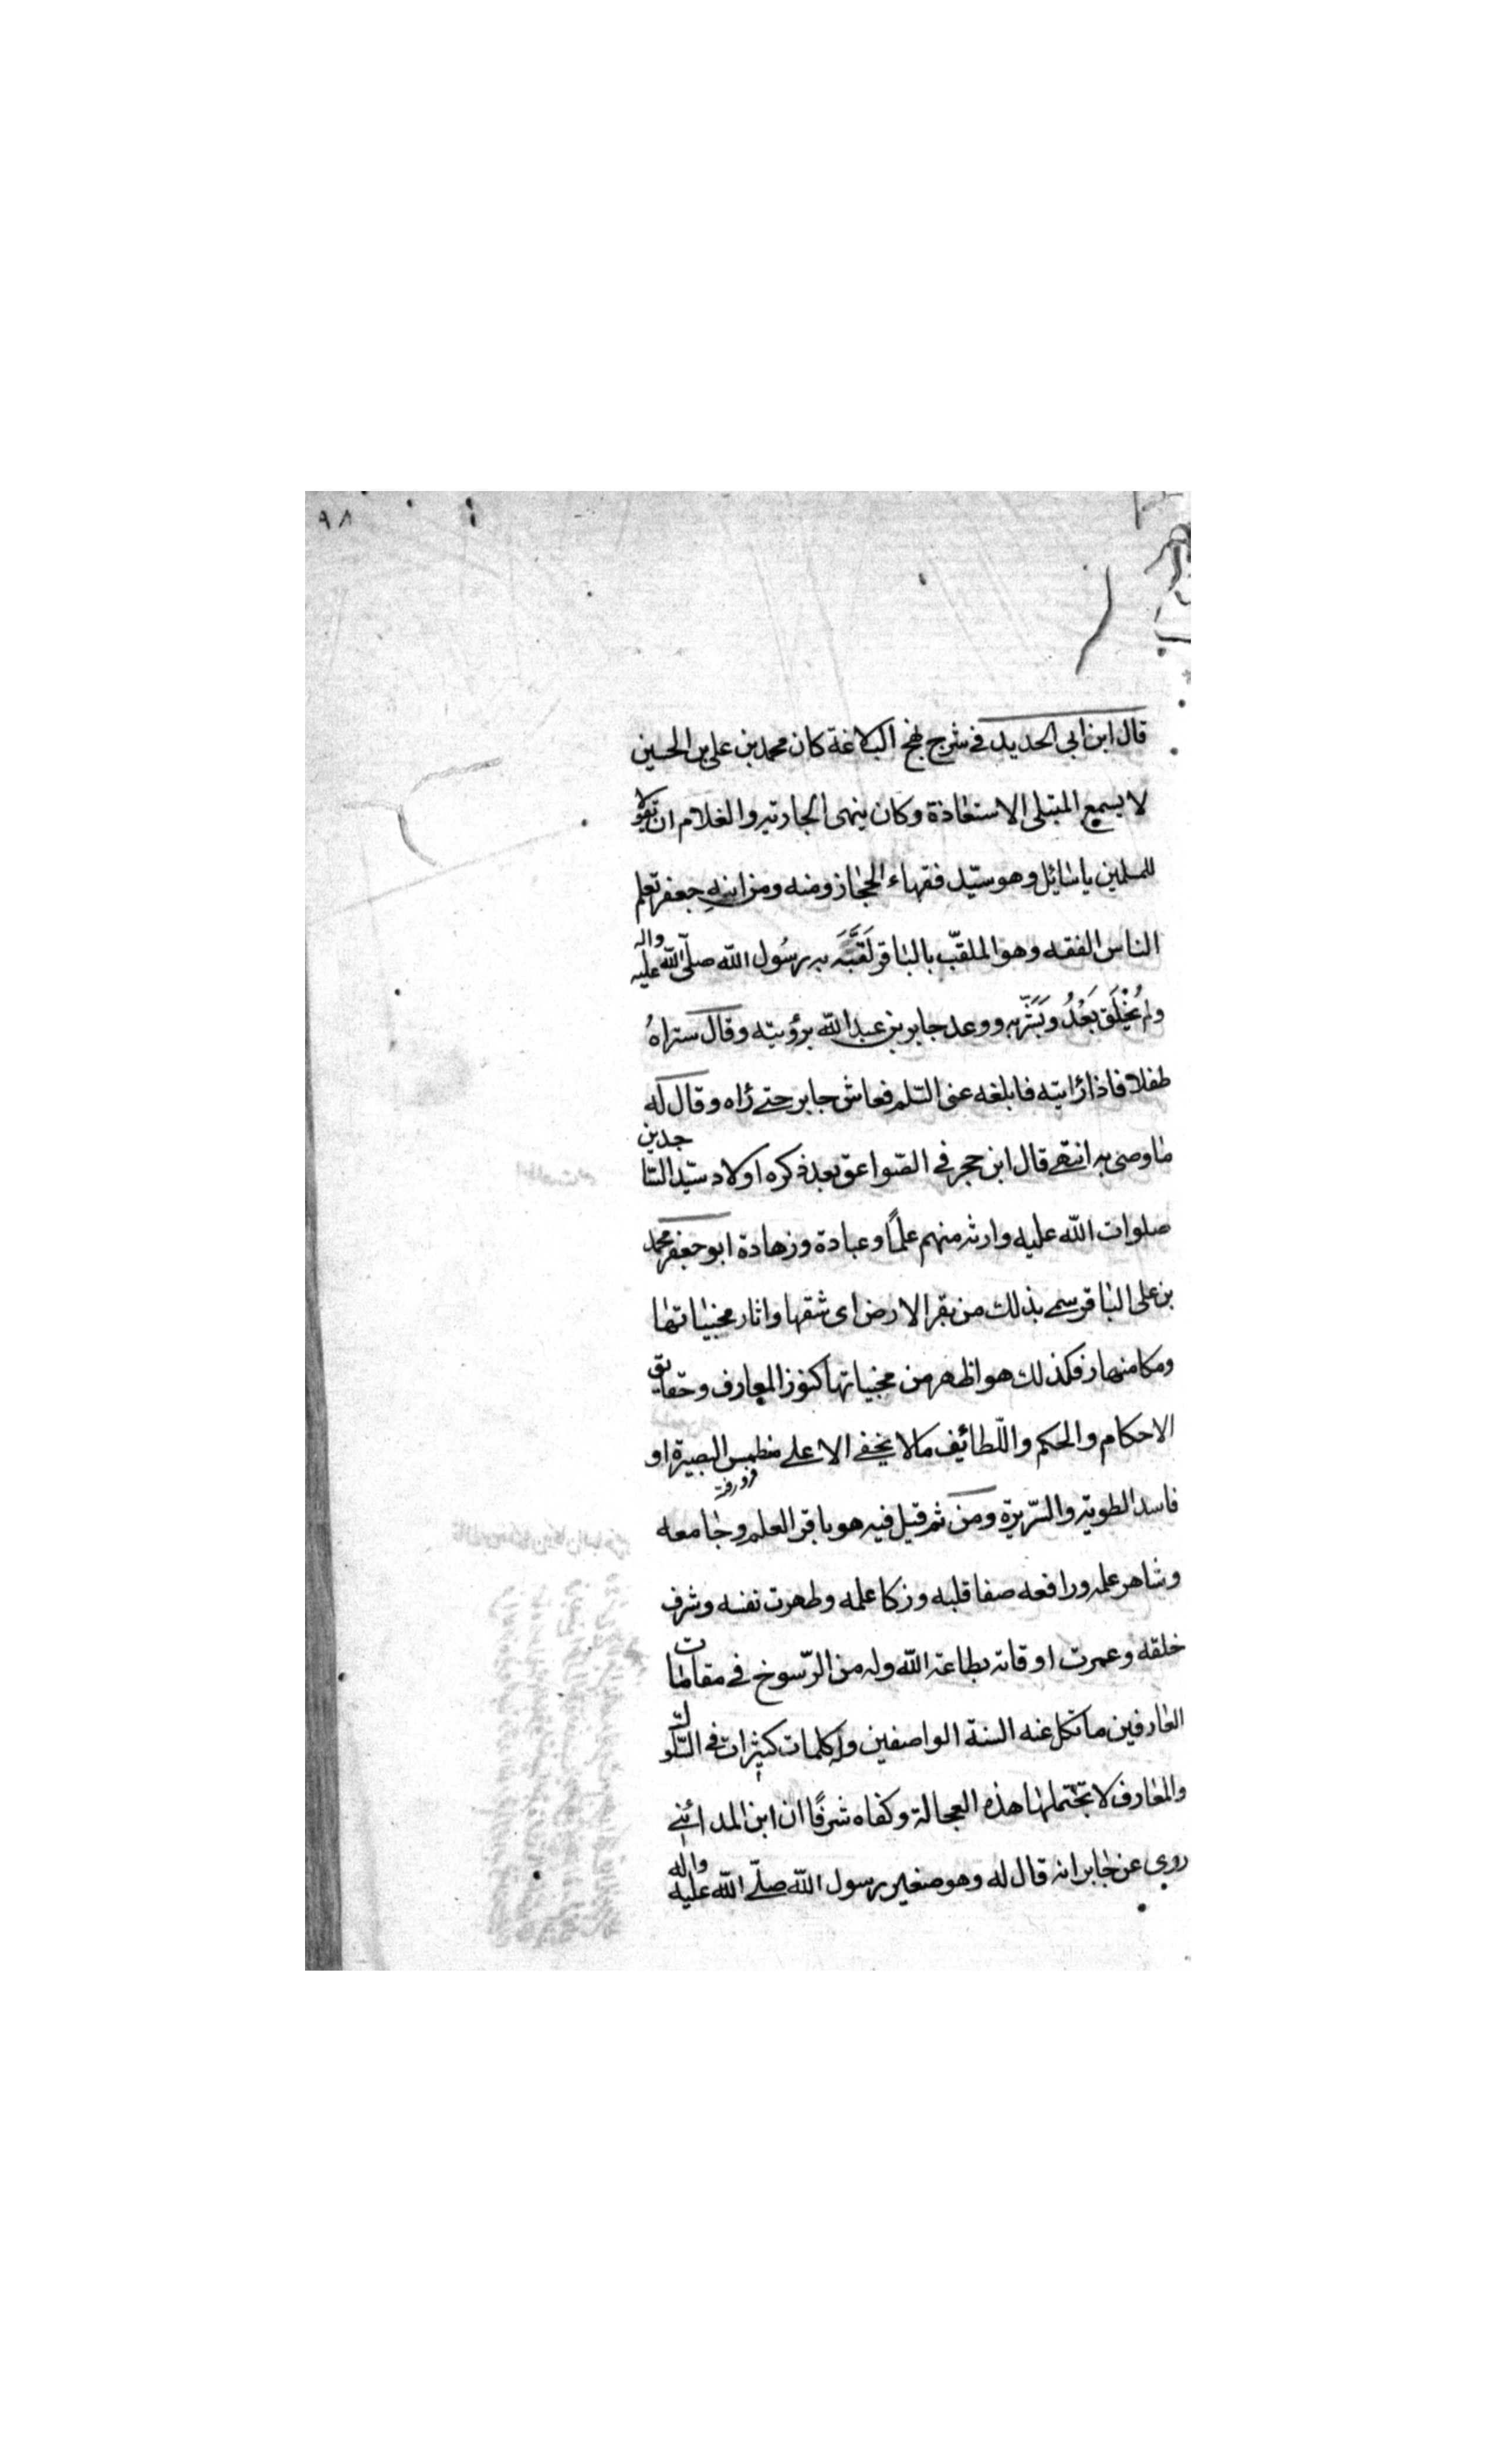 ٩٨
قال ابن ابى الحديد فى شرح نهج البلاغة كان محمد بن على بن الحسين
لا يسمع المبتلى الاستعاذة وكان ينهى الجارية والغلام ان يقولا
للمسلمين يا سائل وهو سيّد فقهاء الحجاز ومنه ومن ابنه جعفر تعلم
الناس الفقه وهو الملقّب بالباقر لَقَّبَه به رسُول الله صلّى الله عليه واله
ولم يُخْلَق بَعْدُ وبَشَّر به ووعد جابر بن عبد الله برؤيته وقال ستراهُ
طفلا فاذا رايته فابلغه عنى السّلم فعاش جابر حتى راه وقال له
ما وصى به انتهى قال ابن حجر فى الصواعق بعد ذكره اولاد سيّد الساجدين
صلوات الله عليه وارثه منهم علمًا وعبادة وزهادة ابو جعفر محمد
بن على الباقر سمى بذلك من بقر الارض اى شقها واثار مخبئاتها
ومكامنها فكذلك هو اظهر من مخبياتها كنوز المعارف وحقايق
الاحكام والحكم واللّطائيف مالا يخفى الا على منطمس البصيرة او
فاسد الطوية والسّريرة ومن ثم قيل فيه هو باقر العلم وجامعه
وشاهر علمه ورافعه صفا قلبه وزكا علمه وطهرت نفسه وشرف
خلقه وعمرت اوقاته بطاعة الله وله من الرّسوخ فى مقامات
العارفين ما تكل عنه السنة الواصفين وله كلمات كثيرات فى السّلوك
والمعارف لا تحتملها هذه العجالة وكفاه شرفًا ان ابن المدائنى
روى عن جابر انه قال له وهو صغير رسول الله صلّى الله عليه واله